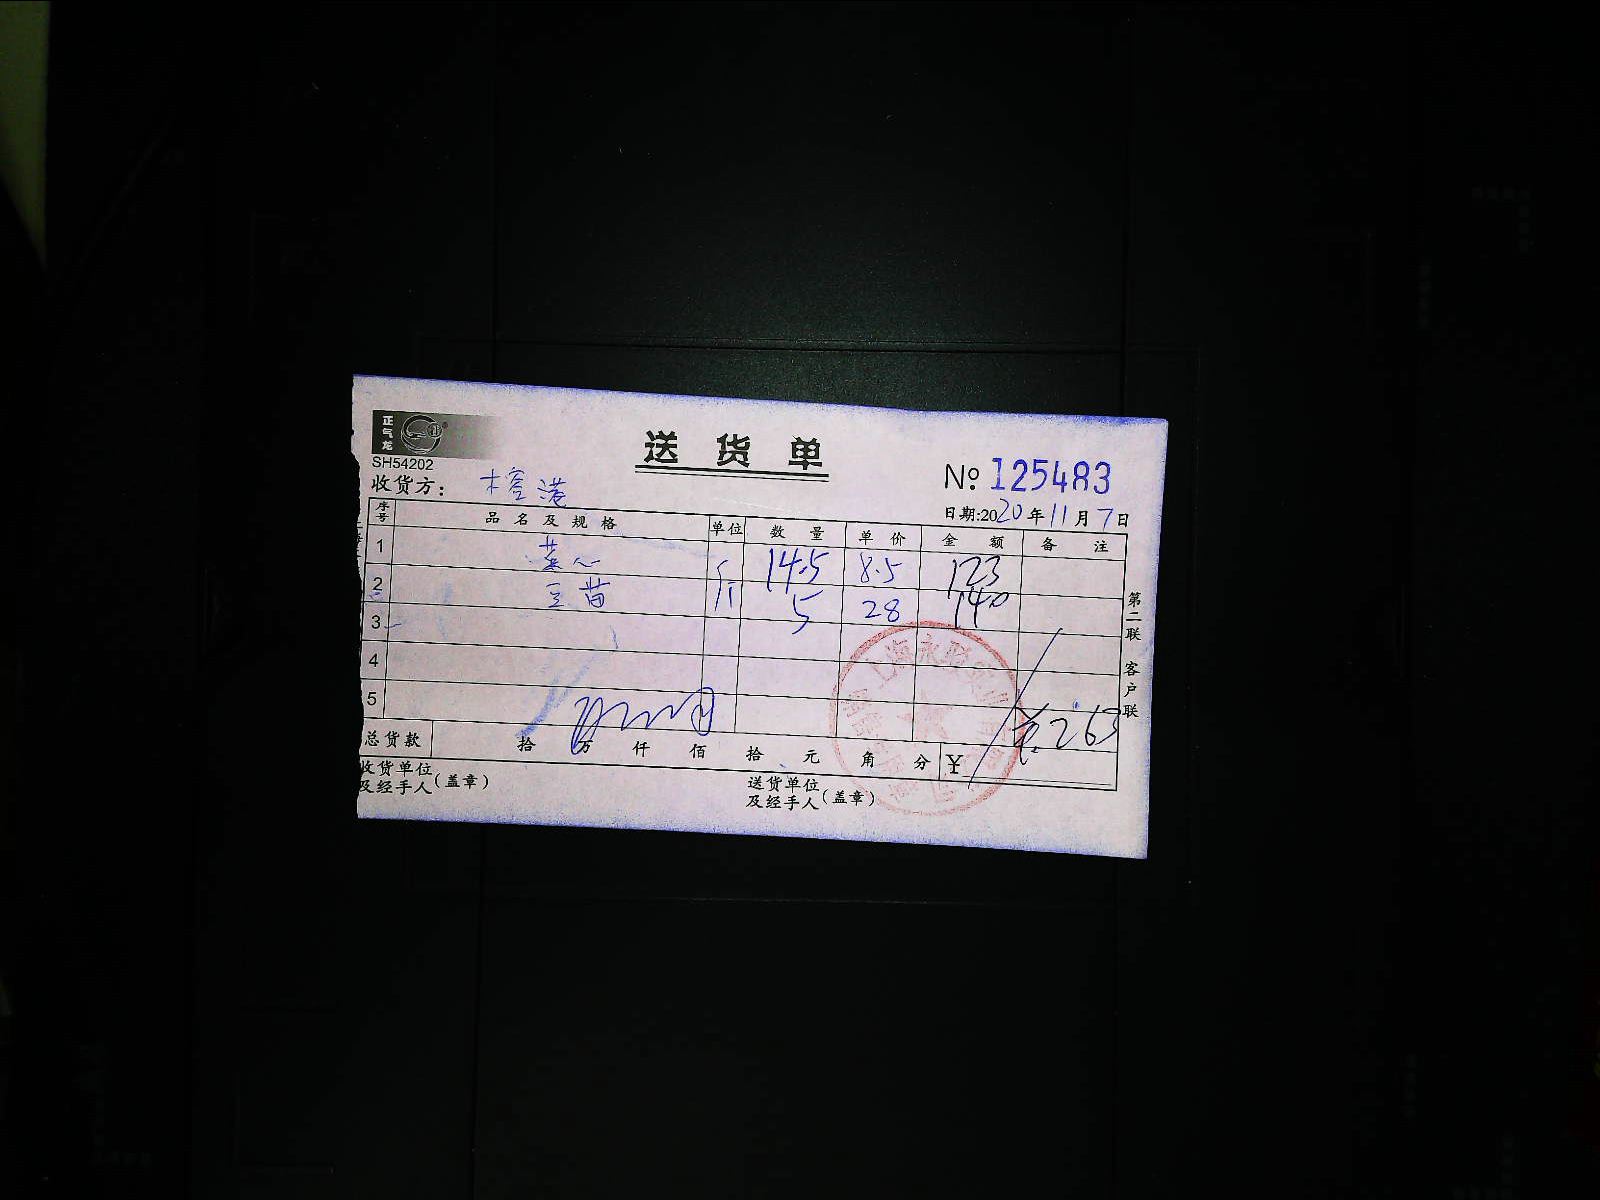 正气龙
SH54202
送货单
No 125483
收货方: 榕港
日期:2020年11月7日
序号 品名及规格 单位 数量 单价 金额 备注
1 菜心 斤 14.5 8.5 123
2 豆苗 斤 5 28 140
3
4
5
263
总货款 拾 万 仟 佰 拾 元 角 分 ¥
收货单位及经手人(盖章) 送货单位及经手人(盖章)
第二联 客户联
上海永